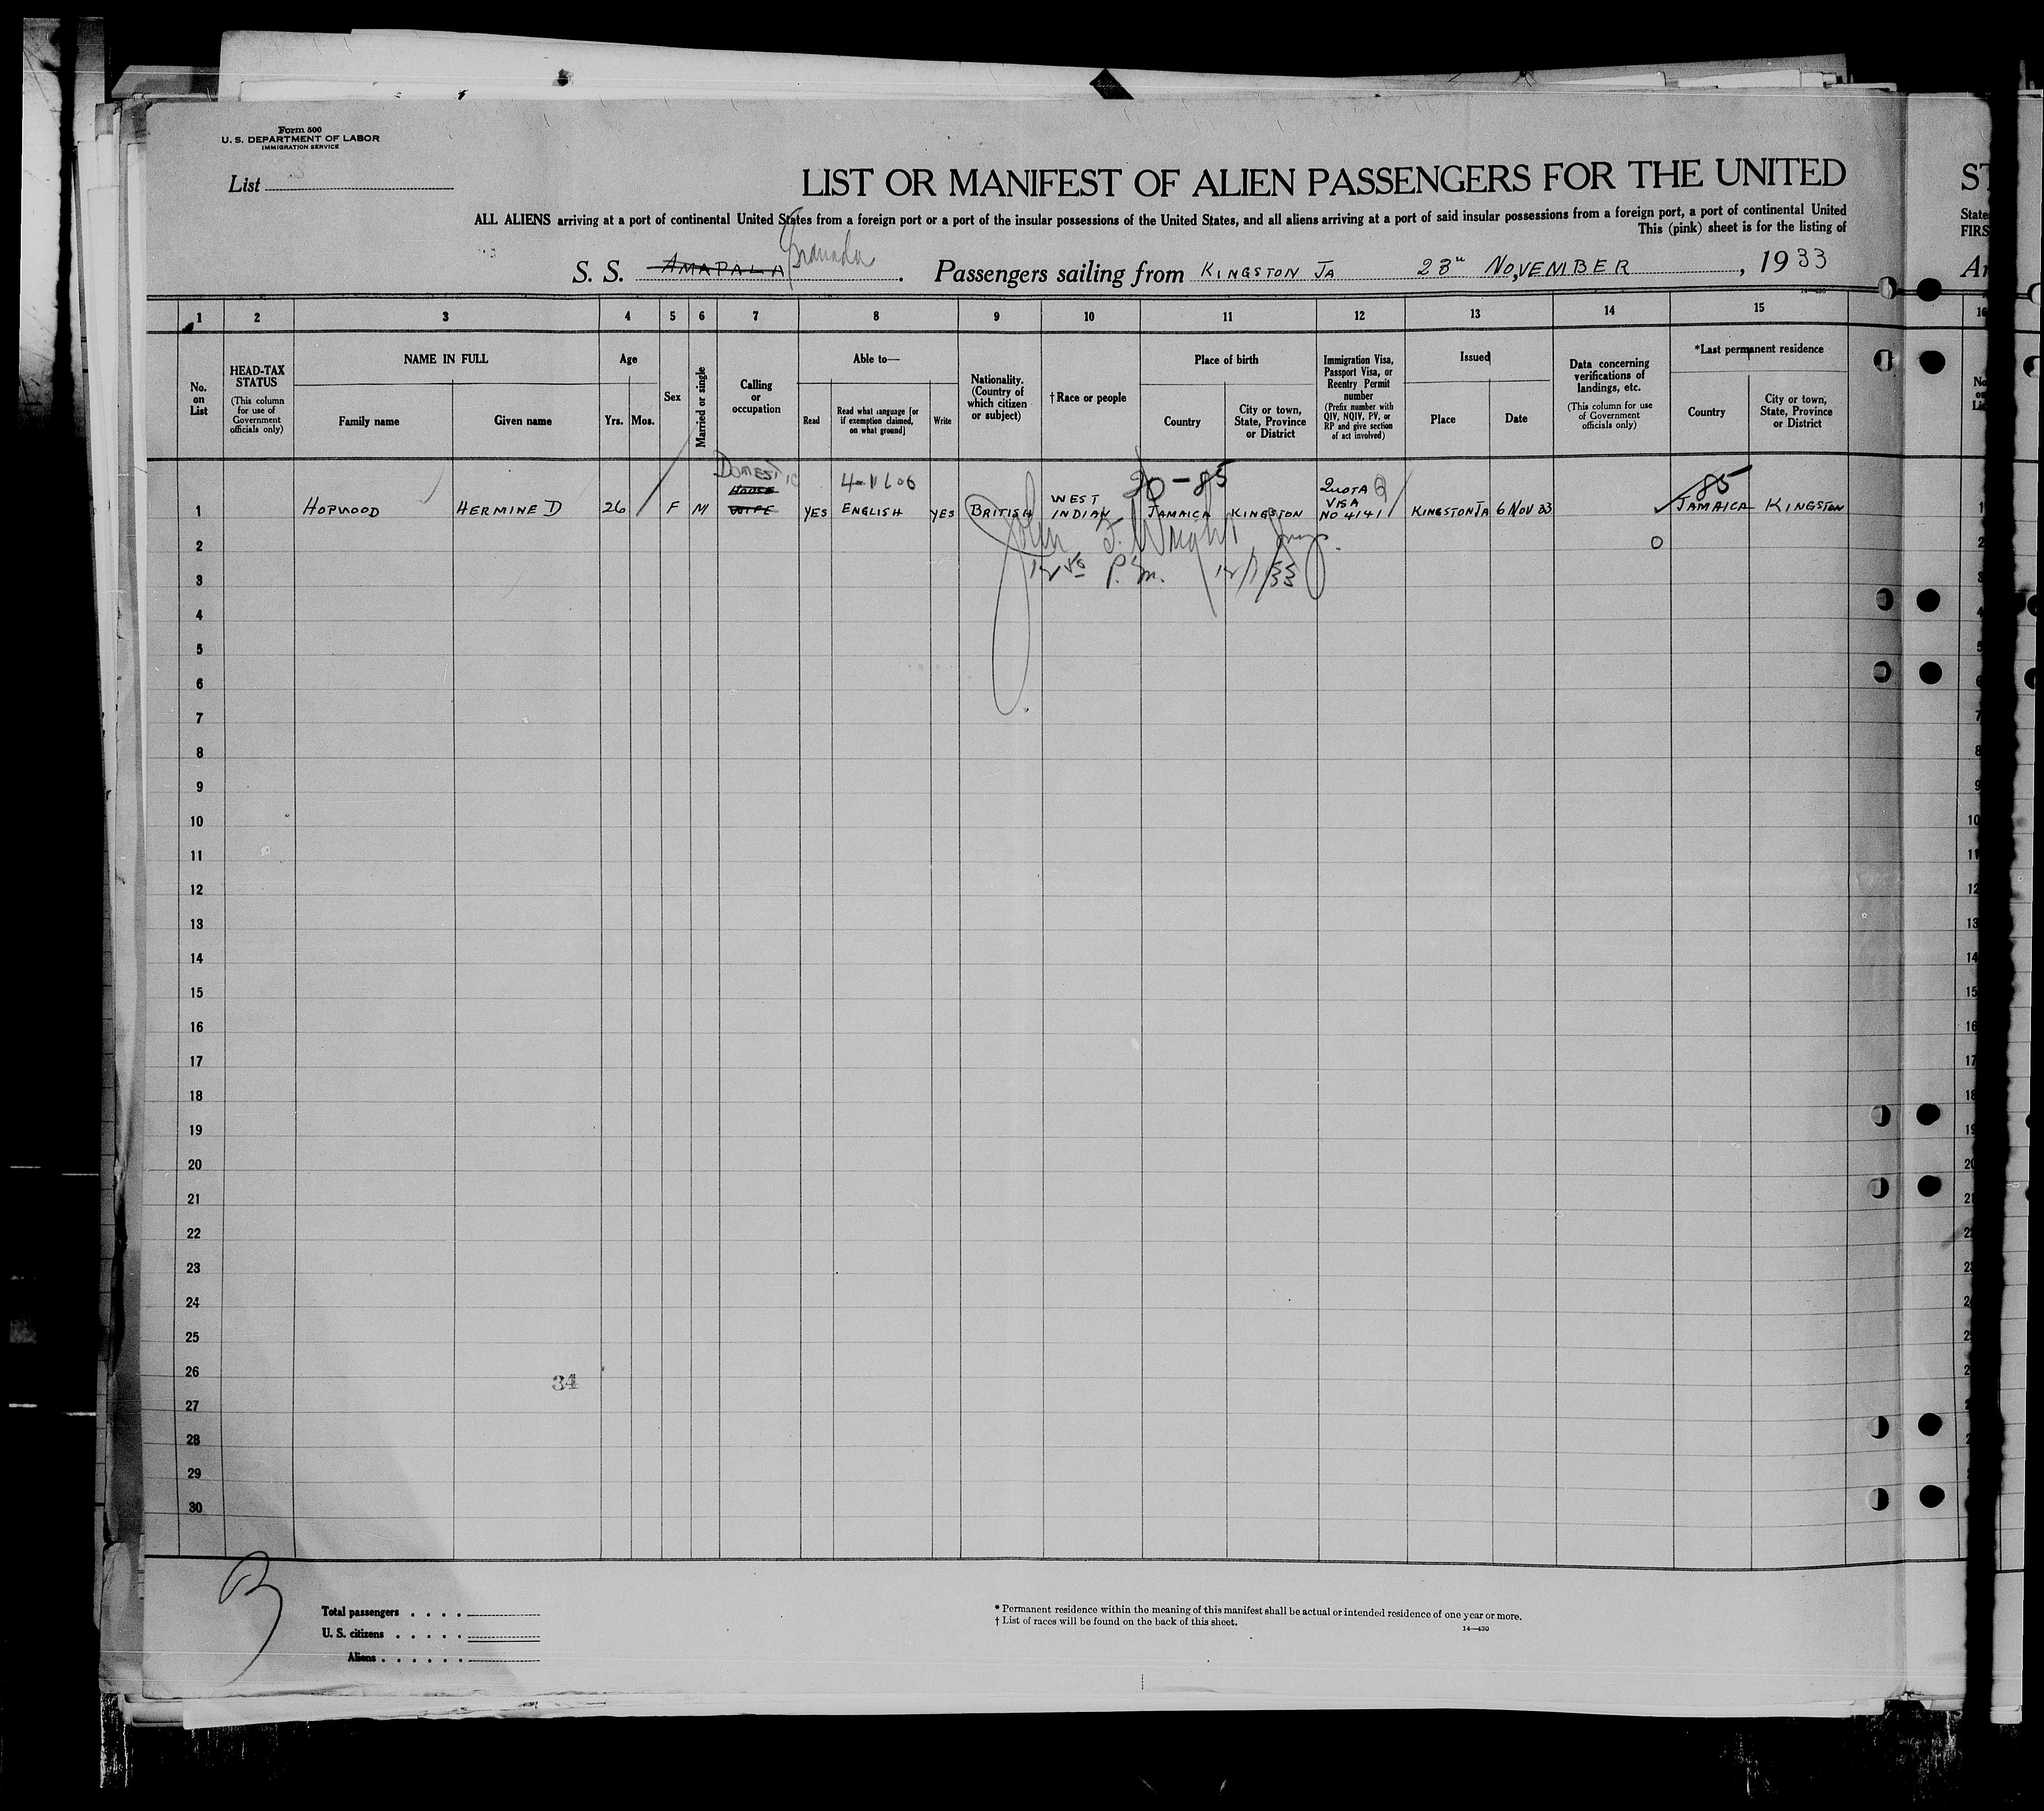 Form 500
U. S. DEPARTMENT OF LABOR
IMMIGRATION SERVICE
List
LIST OR MANIFEST OF ALIEN PASSENGERS FOR THE UNITED
ALL ALIENS arriving at a port of continental United States from a foreign port or a port of the insular possessions of the United States, and all aliens arriving at a port of said insular possessions from a foreign port, a port of continental United
This (pink) sheet is for the listing of
S. S. AMAPALA Granada. Passengers sailing from KINGSTON JA 28th NOVEMBER, 1933
14—430
1 2 3 4 5 6 7 8 9 10 11 12 13 14 15
No. on List
HEAD-TAX STATUS
(This column for use of Government officials only)
NAME IN FULL
Family name
Given name
Age
Yrs. Mos.
Sex
Married or single
Calling or occupation
Able to—
Read
Read what language [or if exemption claimed, on what ground]
Write
Nationality. (Country of which citizen or subject)
† Race or people
Place of birth
Country
City or town, State, Province or District
Immigration Visa, Passport Visa, or Reentry Permit number
(Prefix number with QIV, NQIV, PV, or RP and give section of act involved)
Issued
Place
Date
Data concerning verifications of landings, etc.
(This column for use of Government officials only)
*Last permanent residence
Country
City or town, State, Province or District
1 HOPWOOD HERMINE D 26 F M DOMESTIC HOUSE WIFE YES ENGLISH YES BRITISH WEST INDIAN JAMAICA KINGSTON QUOTA VISA NO 4141 KINGSTON JA 6 NOV 33 JAMAICA KINGSTON
30-85
85
2 John F. Wright
3 12 50 P.M. 12/1/33
4
5
6
7
8
9
10
11
12
13
14
15
16
17
18
19
20
21
22
23
24
25
26
34
27
28
29
30
Total passengers
U. S. citizens
Aliens
* Permanent residence within the meaning of this manifest shall be actual or intended residence of one year or more.
† List of races will be found on the back of this sheet.
14—430